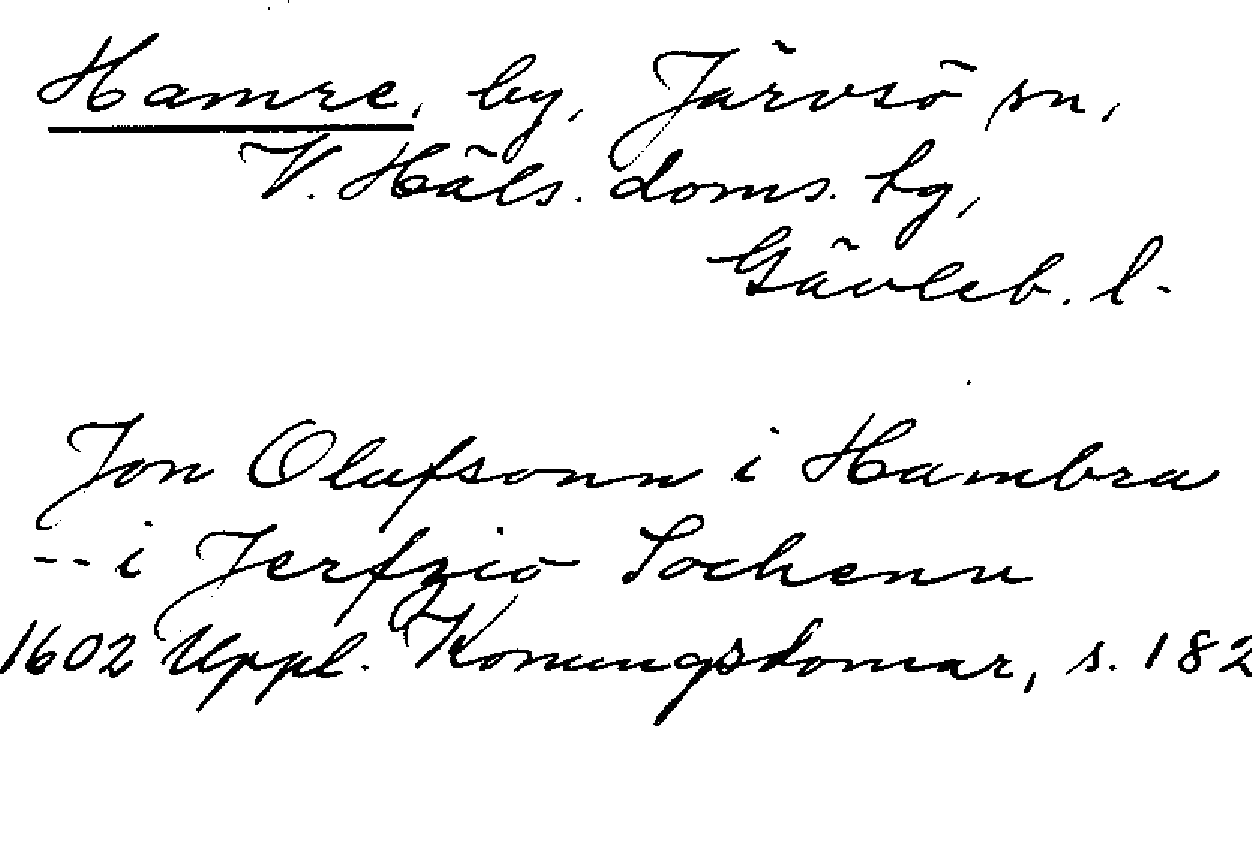 Hamre, by, Järvsö sn,
V. Häls. doms. hg,
Gävleb. l.
Jon Olufsonn i Hambra
-- i Jerfziö Sochenn
1602 Uppl. Konungsdomar, s. 182